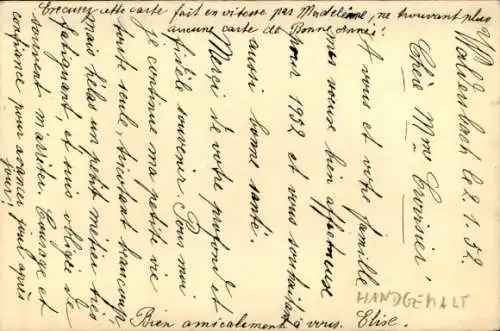 Excusez cette carte fait en vitesse par Madeleine, ne trouvant plus
aucune carte de Bonne Année!
Wahlenbach le 2.1.52.
Chèr Mme
A vous et votre famille
mes voeux bien affectueux
pour 1952 et vous souhaitant
aussi bonne santé.
Merci de votre profond et
fidèle souvenir. Pour moi
je continue ma petite vie
toute seule, tricotant beaucoup
mais hélas un petit métier très
fatiguant, et suis obligée de
souvent m'arrêter. Courage et
confiance pour avancer jour après
jour!
Bien amicalement à vous. Elise.
HANDGEMALT